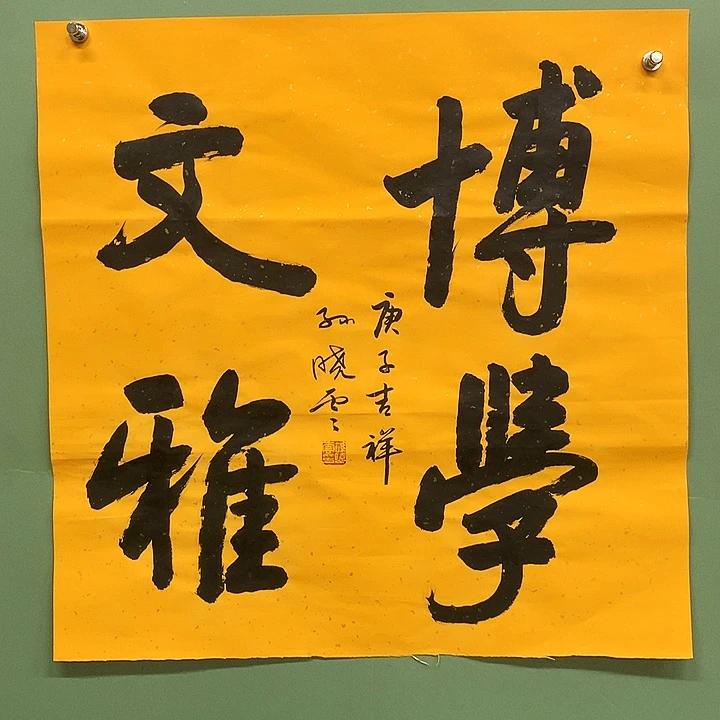 博學
文雅
庚子吉祥
孙晓云